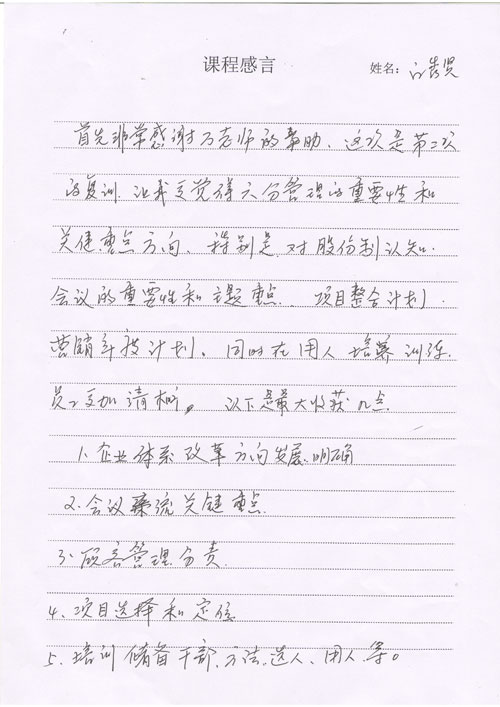 课程感言
姓名：
首先非常感谢万老师的帮助、这次是第二次
的复训、让我更觉得六分管理的重要性和
关健重点方向、特别是对股份制认知.
会议的重要性和主题重点、项目整合计划.
营销年度计划。同时在用人培养训练.
员工更加清晰。以下是最大收获几点
1、企业体系改革方向发展明确
2、会议 流关键重点
3、顾客管理分责
4、项目选择和定位
5、培训储备干部、方法、选人、用人等。